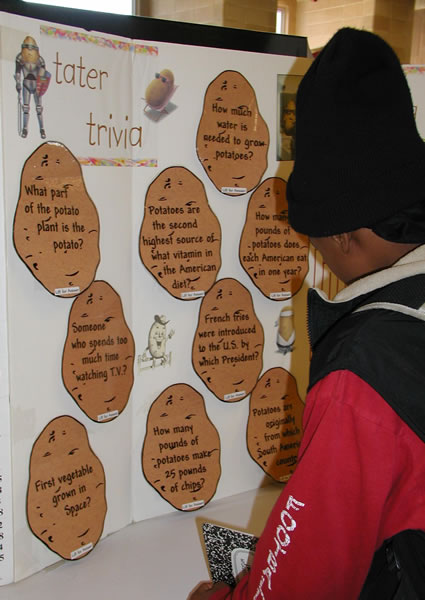 tater
trivia
How much
water is
needed to grow
potatoes?
What part
of the potato
plant is the
potato?
Potatoes are
the second
highest source of
what vitamin in
the American
diet?
How many
pounds of
potatoes does
each American eat
in one year?
Someone
who spends too
much time
watching T.V.?
French fries
were introduced
to the U.S. by
which President?
First vegetable
grown in
Space?
How many
pounds of
potatoes make
25 pounds
of chips?
Potatoes are
originally
from which
South American
country
FOOTBALL